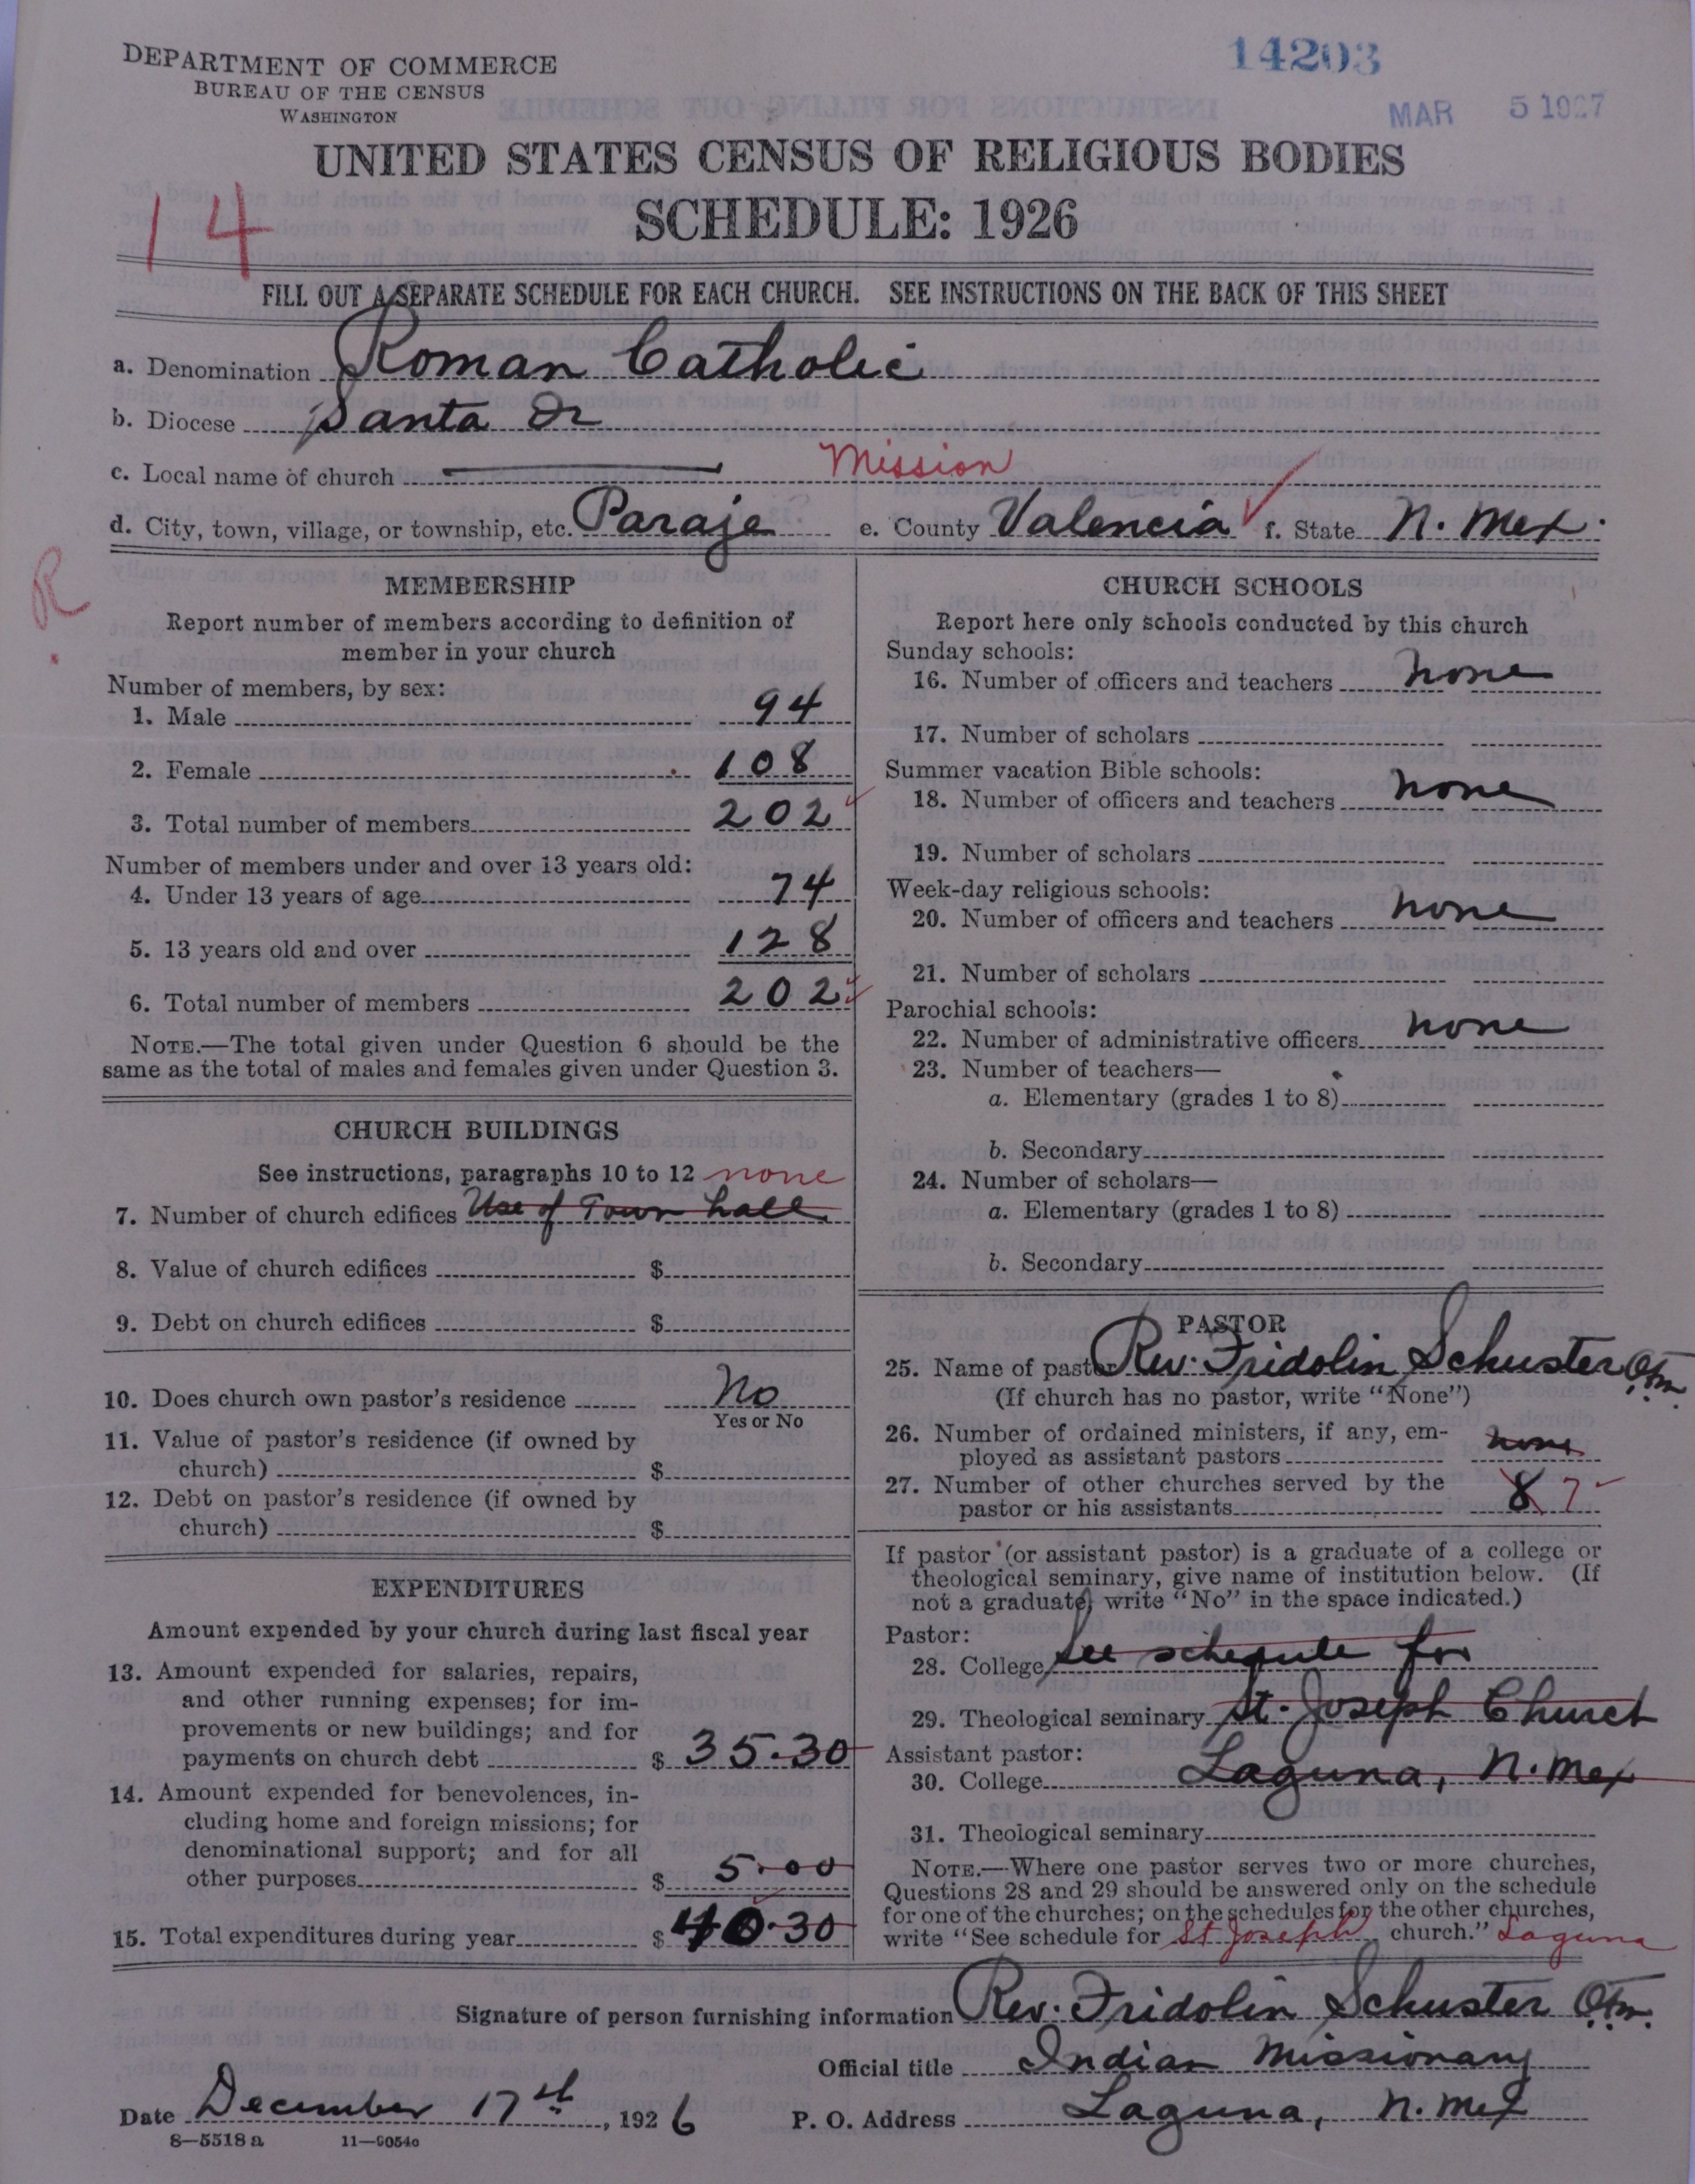 DEPARTMENT OF COMMERCE
BUREAU OF THE CENSUS
WASHINGTON
14203
MAR 5 1927
UNITED STATES CENSUS OF RELIGIOUS BODIES
SCHEDULE: 1926
14
FILL OUT A SEPARATE SCHEDULE FOR EACH CHURCH. SEE INSTRUCTIONS ON THE BACK OF THIS SHEET
a. Denomination Roman Catholic
b. Diocese Santa
c. Local name of church Mission
d. City, town, village, or township, etc. Paraje e. County Valencia f. State N. Mex.
R.
MEMBERSHIP
Report number of members according to definition of
member in your church
Number of members, by sex:
1. Male 94
2. Female 108
3. Total number of members 202
Number of members under and over 13 years old:
4. Under 13 years of age 74
5. 13 years old and over 128
6. Total number of members 202
NOTE.—The total given under Question 6 should be the
same as the total of males and females given under Question 3.
CHURCH BUILDINGS
See instructions, paragraphs 10 to 12 none
7. Number of church edifices Use of Town hall
8. Value of church edifices $
9. Debt on church edifices $
10. Does church own pastor's residence No
Yes or No
11. Value of pastor's residence (if owned by
church) $
12. Debt on pastor's residence (if owned by
church) $
EXPENDITURES
Amount expended by your church during last fiscal year
13. Amount expended for salaries, repairs,
and other running expenses; for im-
provements or new buildings; and for
payments on church debt $ 35.30
14. Amount expended for benevolences, in-
cluding home and foreign missions; for
denominational support; and for all
other purposes $ 5.00
15. Total expenditures during year $ 40.30
CHURCH SCHOOLS
Report here only schools conducted by this church
Sunday schools:
16. Number of officers and teachers none
17. Number of scholars
Summer vacation Bible schools:
18. Number of officers and teachers none
19. Number of scholars
Week-day religious schools:
20. Number of officers and teachers none
21. Number of scholars
Parochial schools:
22. Number of administrative officers none
23. Number of teachers—
a. Elementary (grades 1 to 8)
b. Secondary
24. Number of scholars—
a. Elementary (grades 1 to 8)
b. Secondary
PASTOR
25. Name of pastor Rev. Fridolin Schuster O.F.M.
(If church has no pastor, write "None")
26. Number of ordained ministers, if any, em-
ployed as assistant pastors none
27. Number of other churches served by the
pastor or his assistants 8 7
If pastor (or assistant pastor) is a graduate of a college or
theological seminary, give name of institution below. (If
not a graduate, write "No" in the space indicated.)
Pastor:
28. College See schedule for
29. Theological seminary St. Joseph Church
Assistant pastor:
30. College Laguna, N. Mex
31. Theological seminary
NOTE.—Where one pastor serves two or more churches,
Questions 28 and 29 should be answered only on the schedule
for one of the churches; on the schedules for the other churches,
write "See schedule for St Joseph church." Laguna
Signature of person furnishing information Rev. Fridolin Schuster O.F.M.
Official title Indian Missionary
Date December 17th, 1926 P. O. Address Laguna, N. Mex
8—5518a 11—9054o